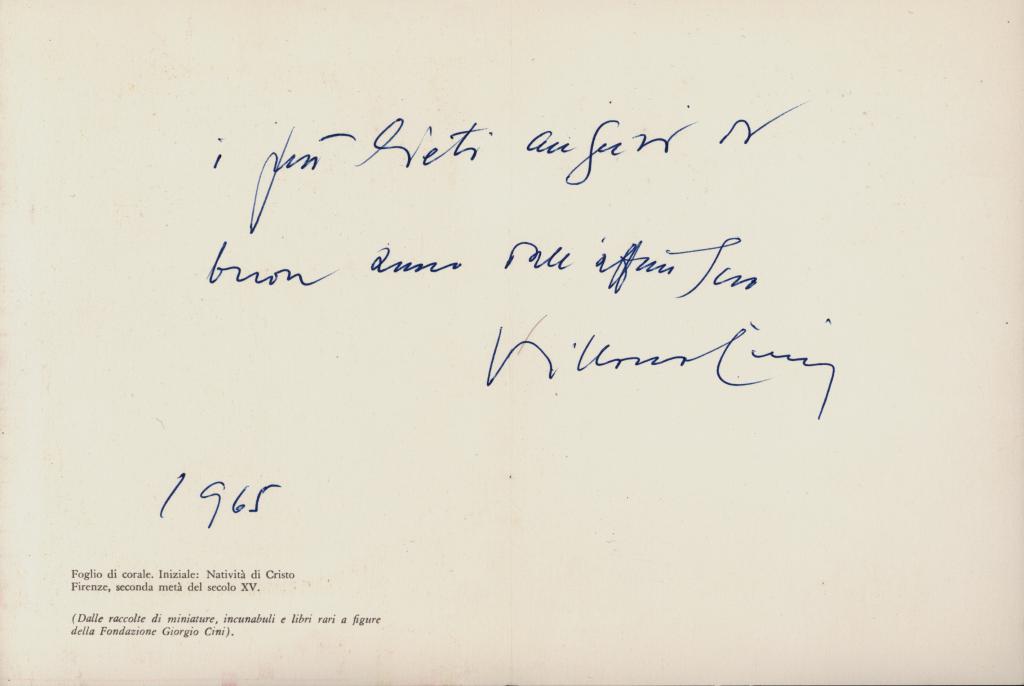 i più lieti auguri di
buon anno dall'aff.mo Suo
Vittorio Cini
1965
Foglio di corale. Iniziale: Natività di Cristo
Firenze, seconda metà del secolo XV.
(Dalle raccolte di miniature, incunabuli e libri rari a figure
della Fondazione Giorgio Cini).